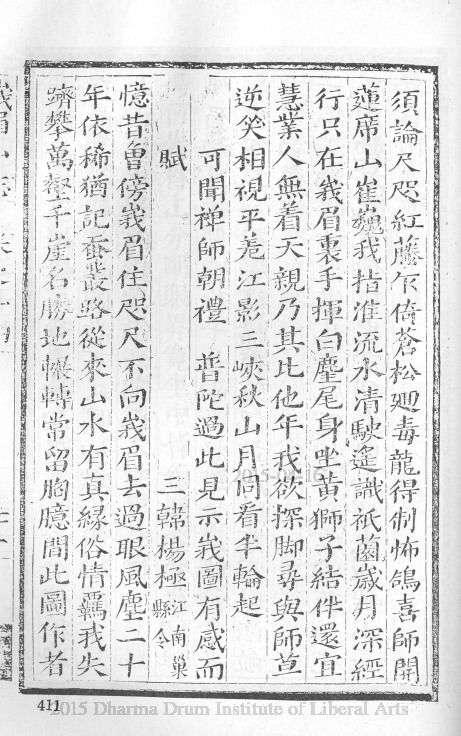 須論尺咫紅藤乍倚蒼松廻毒龍得制怖鴿喜師開
蓮席山崔巍我指淮流水清駛遙識祇園歲月深經
行只在峩眉裏手揮白麈尾身坐黃獅子結伴還宜
慧業人無着天親乃其比他年我欲探脚尋與師莞
逆笑相視平羗江影三峽秋山月同看半輪起
可聞禅師朝禮 普陀過此見示峩圖有感而
賦 三韓楊極 江南巢縣令
憶昔曾傍峩眉住咫尺不向峩眉去過眼風塵二十
年依稀猶記蚕叢路從來山水有真緣俗情羈我失
躋攀萬壑千崖名勝地懶轉常留胸臆間此圖作者
411
2015 Dharma Drum Institute of Liberal Arts